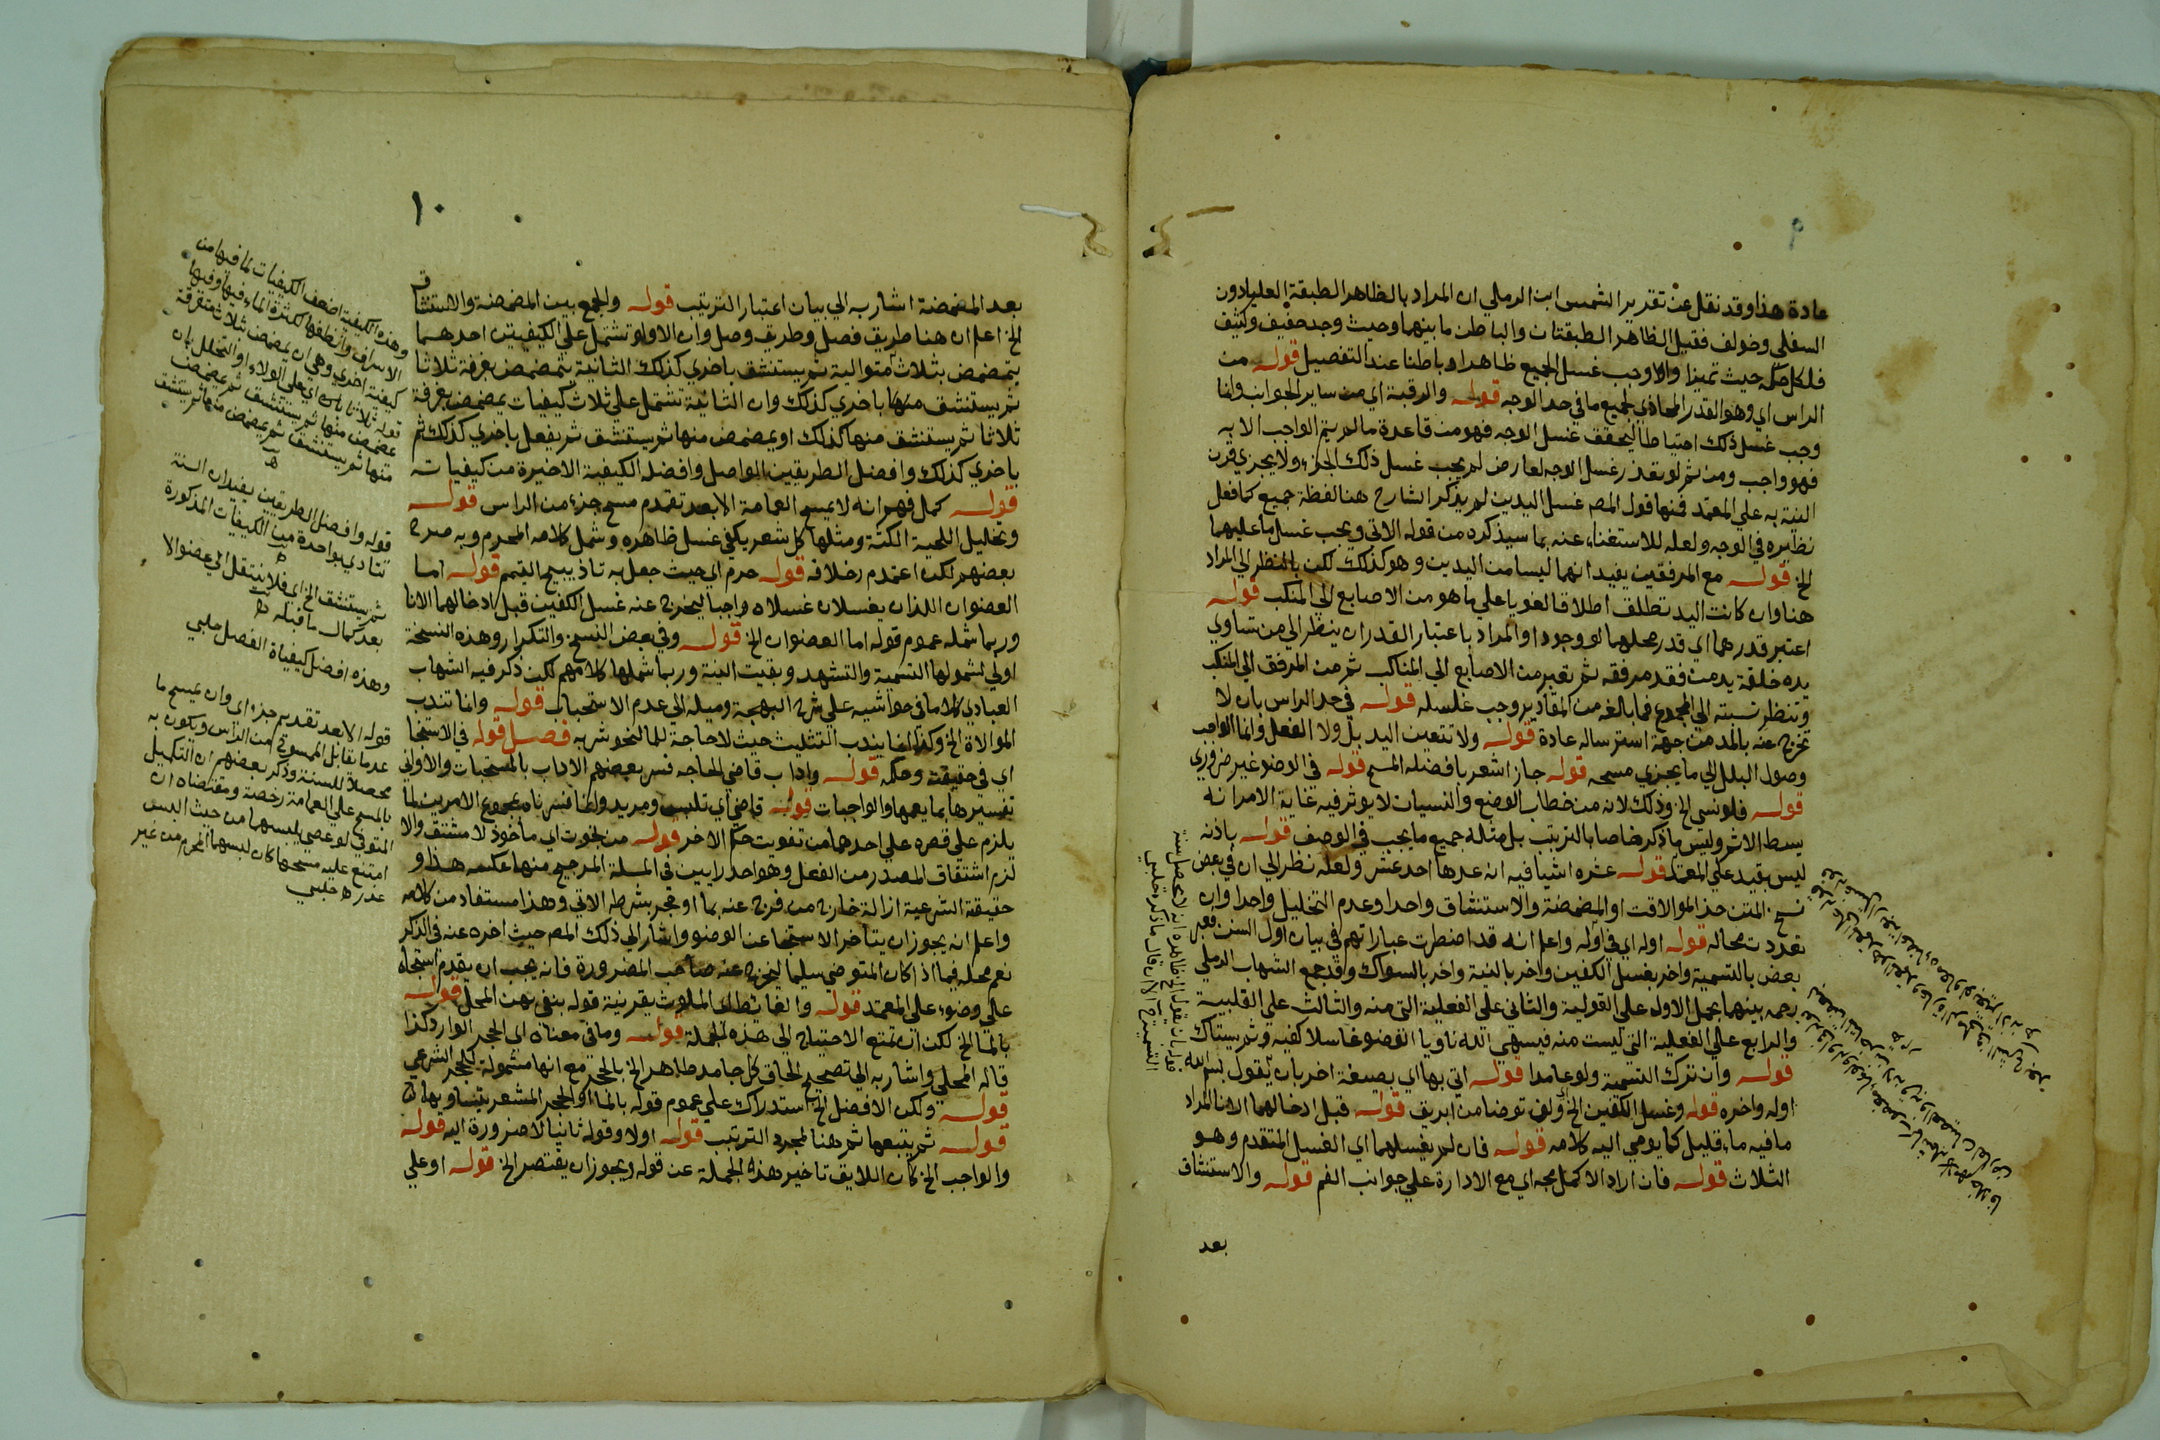 ٩
عادة هذا وقد نقل عن تقرير الشمس ابن الرملي ان المراد بالظاهر الطبقة العليا دون
السفلي وخولف فقيل الظاهر الطبقتان والباطن ما بينهما وحيث وجد خفيف وكثيف
فلكل حكمه حيث تميزا والا وجب غسل الجميع ظاهرا وباطنا عند التفصيل قوله من
الراس اي وهو القدر المحاذي لجميع ما في حد الوجه قوله والرقبة اي من ساير الجوانب وانما
وجب غسل ذلك احتياطا ليتحقق غسل الوجه فهو من قاعدة ما لم يتم الواجب الا به
فهو واجب ومن ثم لو تعذر غسل الوجه لعارض لم يجب غسل ذلك الجزء ولا يجزي قرن
النية به علي المعتمد فمنها قول المص غسل اليدين لم يذكر الشارح هنا لفظة جميع كما فعل
نظيره في الوجه ولعله للاستغناء عنه بما سيذكره من قوله الاتي ويجب غسل ما عليهما
الخ قوله مع المرفقين يفيد انهما ليسا من اليدين وهو كذلك لكن بالنظر الي المراد
هنا وان كانت اليد تطلق اطلاقا لغويا علي ما هو من الاصابع الي المنكب قوله
اعتبر قدرهما اي قدر محلهما لو وجودا والمراد باعتبار القدر ان ينظر الي من تساوي
يده خلقة يد من فقد مرفقه ثم تعتبر من الاصابع الي المناكب ثم من المرفق الي المنكب
وتنظر نسبته الي المجموع فما بالغه من المقادير وجب غلسله قوله في حد الراس بان لا
تخرج عنه بالمد من جهة استرساله عادة قوله ولا تتعين اليد بل ولا الفعل وانما الواجب
وصول البلل الي ما يجزي مسحه قوله جاز اشعر بافضله المسح قوله في الوضو غير ضروري
قوله فلو نسي الخ وذلك لانه من خطاب الوضع والنسيان لا يوثر فيه غاية الامر انه
يسط الاثم وليس ما ذكر خاصا بالترتيب بل مثله جميع ما يجب في الوصف قوله باذنه
ليس بقيد علي المعتمد قوله عشره اشيا فيه انه عدها احد عشر ولعله نظر الي ان في بعض
نسخ المتن حذ الموالاقت او المضمضة والاستنشاق واحدا وعدم التخليل واحدا وان
تعددت محاله قوله اوله اي في اوله واعلم انه قد اضطرت عباراتهم في بيان اول السنن فعبر
بعض بالتسمية واخر بغسل الكفين واخر بالنية واخر بالسواك وقد جمع الشهاب الرملي
رحمه بينهما بحمل الاول علي القولية والثاني علي الفعلية التي منه والثالث علي القلبية
والرابع علي الفعلية التي ليست منه فيسهي الله ناويا الوضو غاسلا كفيه وثم يستاك
قوله وان ترك التسمية ولو عامدا قوله اتي بها اي بصيغة اخر بان يقول بسم الله
اوله واخره قوله وغسل الكفين الخ ولو توضا من ابريق قوله قبل ادخالهما الانا المراد
ما فيه ماء قليل كما يومي اليه كلامه قوله فان لم يغسلهما اي الغسل المتقدم وهو
الثلاث قوله فان اراد الاكمل مجه اي مع الادارة علي جوانب الفم قوله والاستنشاق
بعد
١٠
بعد المضمضة اشار به الي بيان اعتبار الترتيب قوله والجمع بين المضمضة والاستنشاق
الخ اعلم ان هنا طريق فصل وطريق وصل وان الاولو تشتمل علي الكيفيتين احدهما
يتمضمض بثلاث متوالية ثم يستنشق باخري كذلك الثانية يتمضمض بغرفة ثلاثا
ثم يستنشق منها باخري كذلك وان الثانية تشتمل علي ثلاث كيفيات يمضمض بغرفة
ثلاثا ثم يستنشق منها كذلك او يمضمض منها ثم يستنشق ثم يفعل باخري كذلك ثم
باخري كذلك وافضل الطريقين المواصل وافضل الكيفية الاخيرة من كيفياته
قوله كمل فهم انه لا يمسح العمامة الا بعد تقدم مسح جزء من الراس قوله
وتخليل اللحية الكثة ومثلها كل شعر يكفي غسل ظاهره وشمل كلامه المحرم وبه صرح
بعضهم لكن اعتمدم رخلافه قوله حرم اي حيث جعل به تاذ يبيح التيمم قوله اما
العضوان اللذان يغسلان غسلاه واجبا ليخرج عنه غسل الكفين قبل ادخالهما الانا
وربما شمله عموم قوله اما العضوان الخ قوله وفي بعض النسخ والتكرار وهذه النسخة
اولي لشمولها التسمية والتشهد وبقيت النية وربما شملها كلامهم لكن ذكر فيه الشهاب
العبادي كلاما في حواشيه علي شرح البهجة وميله الي عدم الاستحباب قوله وانما تندب
الموالاة الخ وكذا انما يندب التثليث حيث لا حاجة للما لنحو شربه فصل قوله في الاستنجا
اي في حقيقته وحكمه قوله واداب قاضي الحاجه فسر بعضهم الاداب بالمستحبات والاولي
تفسيرها بما يعمها والواجبات قوله قاضي اي تلبس ومريد وانما فسرناه بمجموع الامرين لما
يلزم علي قصره علي احدهما من تفويت حكم الاخر قوله من نجوت اي ماخوذ لا مشتق والا
لزم اشتقاق المصدر من الفعل وهو احد رايين في المسلة المرجح منها عكسه هذا و
حقيقة الشرعية ازالة خارج من فرج عنه بما او حجر بشرطه الاتي وهذا مستفاد من كلامه
واعلم انه يجوز ان يتاخر الاستنجا عن الوضوء واشار الي ذلك المص حيث اخره عنه في الذكر
نعم محله فيما اذا كان المتوضي سليما ليخرج عنه صاحب الضرورة فانه يجب ان يقدم استنجاه
علي وضوء علي المعتمد قوله والغايط الملوث بقرينة قوله ينقي بهن المحل قوله
بالما الخ لكن ان تمنع الاحتياج الي هذه الجملة قوله وما في معناه اي الحجر الوارد كذا
قاله المحلي واشار به الي تصحيح الحاق كل جامد طاهر الخ بالحجر مع انها مشمولة للحجر الشرعي
قوله ولكن الافضل الخ استدراك علي عموم قوله بالما او الحجر المشعر بتساويهما ح
قوله ثم يتبعها ثم هنا لمجرد الترتيب قوله اولا وقوله ثانيا لا ضرورة اليه قوله
والواجب الخ كان اللايق تاخير هذه الجملة عن قوله ويجوز ان يقتصر الخ قوله او علي
وهذه الكيفية اضعف الكيفيات لما فيها من
الاسراف وانظفها لكثرة الماء فيها وفيها
كيفية اخري وهي ان يمضمض ثلاث متفرقة
قوله ثلاثا اي علي الولاء او التخلل بان
يمضمض منها ثم يستنشق ثم يمضمض
منها ثم يستنشق ثم يمضمض منها ثم يستنشق
قوله وافضل الطريقين يفيد ان السنة
تتادي بواحدة من الكيفيات المذكورة
ثم يستنشق الخ اي فلا ينتقل الي عضو الا
بعد كمال ما قبله
وهذه افضل كيفياة الفصل حلبي
قوله الا بعد تقديم جزء اي وان يمسح ما
عدما يقابل الممسوح من الراس ويكون به
محصلا للسنة وذكر بعضهم ان التكميل
بالمسح علي العمامة رخصة ومقتضاه ان
المتوفي لو عصي بلبسها من حيث اللبس
امتنع عليه مسحها كان لبسها المحرم من غير
عذر ه حلبي